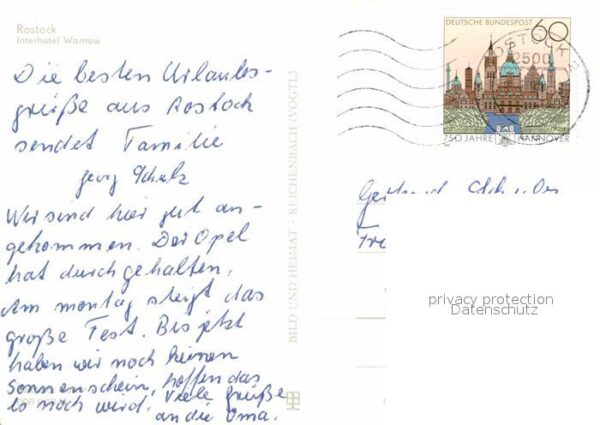 Rostock
Interhotel Warnow
Die besten Urlaubs-
grüße aus Rostock
sendet Familie
Georg Schulz
Wir sind hier gut an-
gekommen. Der Opel
hat durchgehalten.
Am montag steigt das
große Fest. Bis jetzt
haben wir noch keinen
Sonnenschein, hoffen das
es noch wird. Viele grüße
an die Oma.
BILD UND HEIMAT · REICHENBACH (VOGTL)
DEUTSCHE BUNDESPOST 60
ROSTOCK
2500
750 JAHRE HANNOVER
Gertrud
privacy protection
Datenschutz